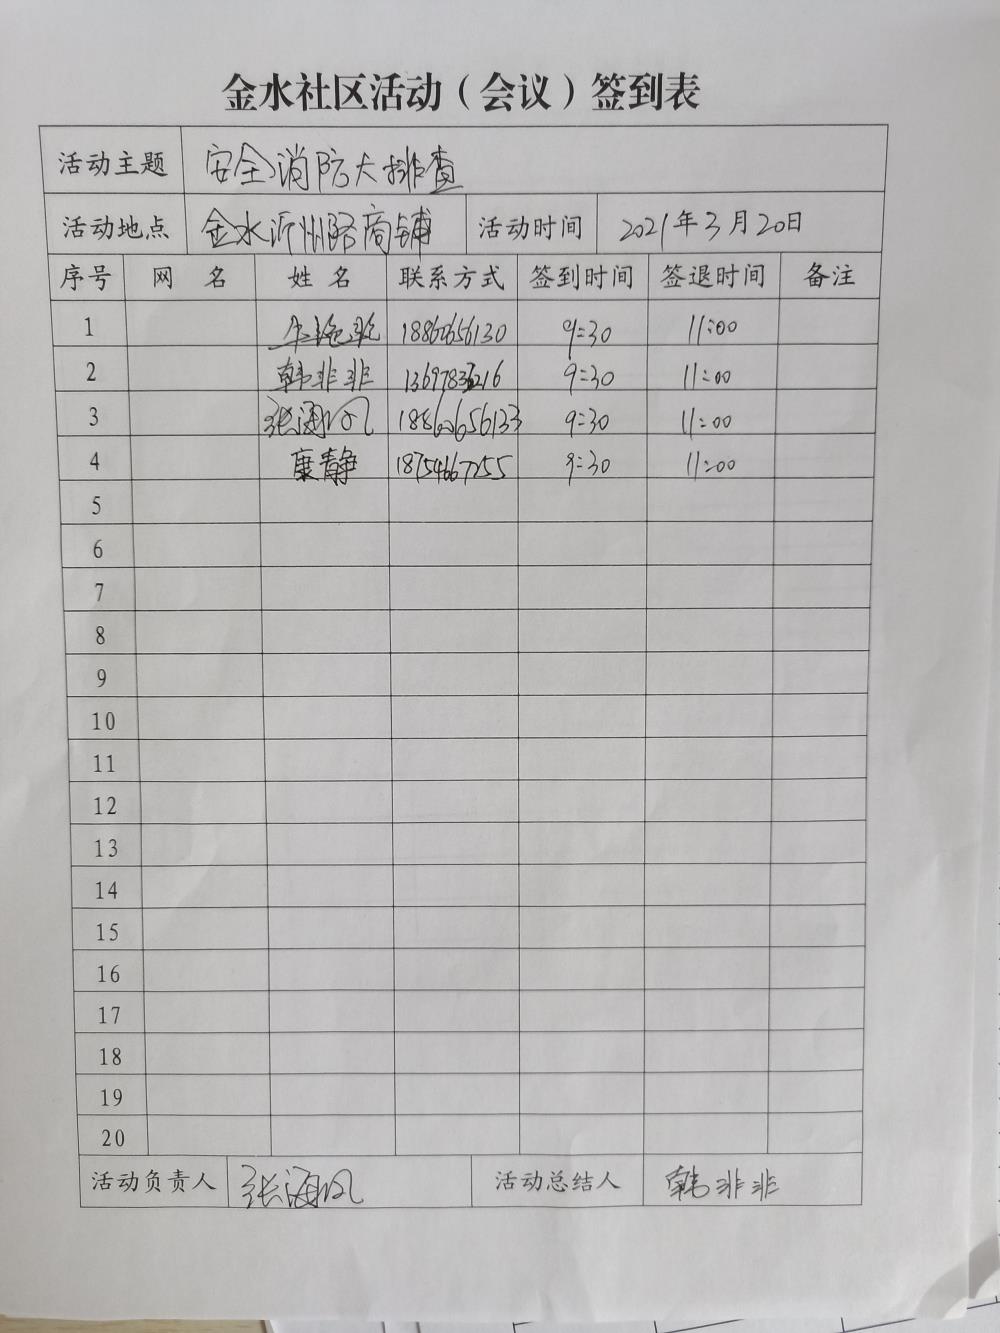 金水社区活动（会议）签到表
活动主题 安全消防大排查
活动地点 金水沂州路商铺 活动时间 2021年3月20日
序号 网名 姓名 联系方式 签到时间 签退时间 备注
1 18860656130 9:30 11:00
2 韩非非 9:30 11:00
3 张海风 18860656133 9:30 11:00
4 康静 18754667255 9:30 11:00
5
6
7
8
9
10
11
12
13
14
15
16
17
18
19
20
活动负责人 张海风 活动总结人 韩非非